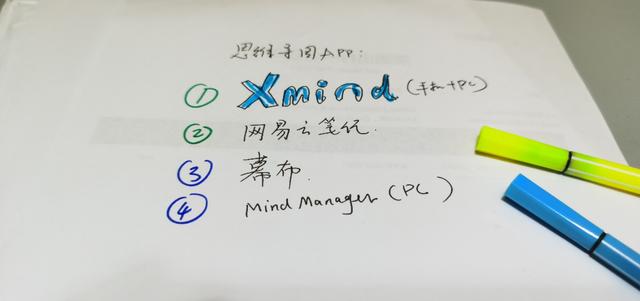 思维导图APP:
① Xmind (手机+PC)
② 网易云笔记.
③ 幕布.
④ Mind Manager (PC)